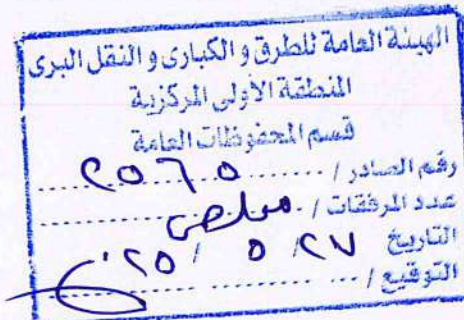 الهيئة العامة للطرق و الكبارى و النقل البرى
المنطقة الأولى المركزية
قسم المحفوظات العامة
رقم الصادر / ........ ٢٥٦٥
عدد المرفقات /
التاريخ ٢٧ / ٥ / ٢٥
التوقيع / ...